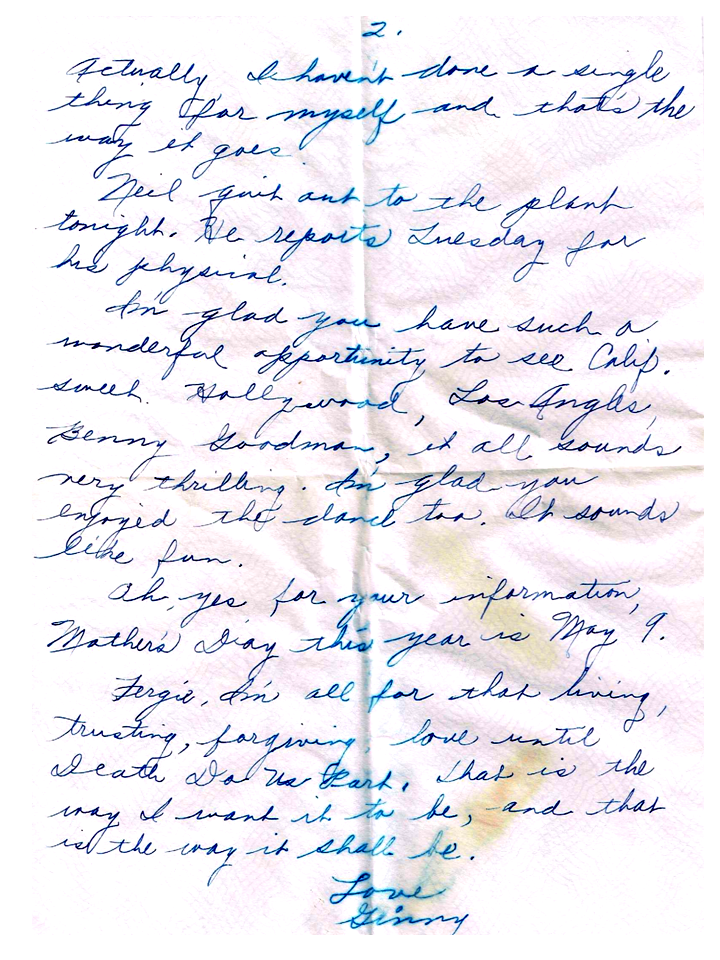 2.
Actually I haven't done a single
thing for myself and that's the
way it goes.
Neil quit out to the plant
tonight. He reports Tuesday for
his physical.
I'm glad you have such a
wonderful opportunity to see Calif.
sweet. Hollywood, Los Angles,
Benny Goodman, it all sounds
very thrilling. I'm glad you
enjoyed the dance too. It sounds
like fun.
Oh, yes for your information,
Mother's Day this year is May 9.
Fergie, I'm all for that living,
trusting, forgiving, love until
Death Do Us Part. That is the
way I want it to be, and that
is the way it shall be.
Love
Ginny